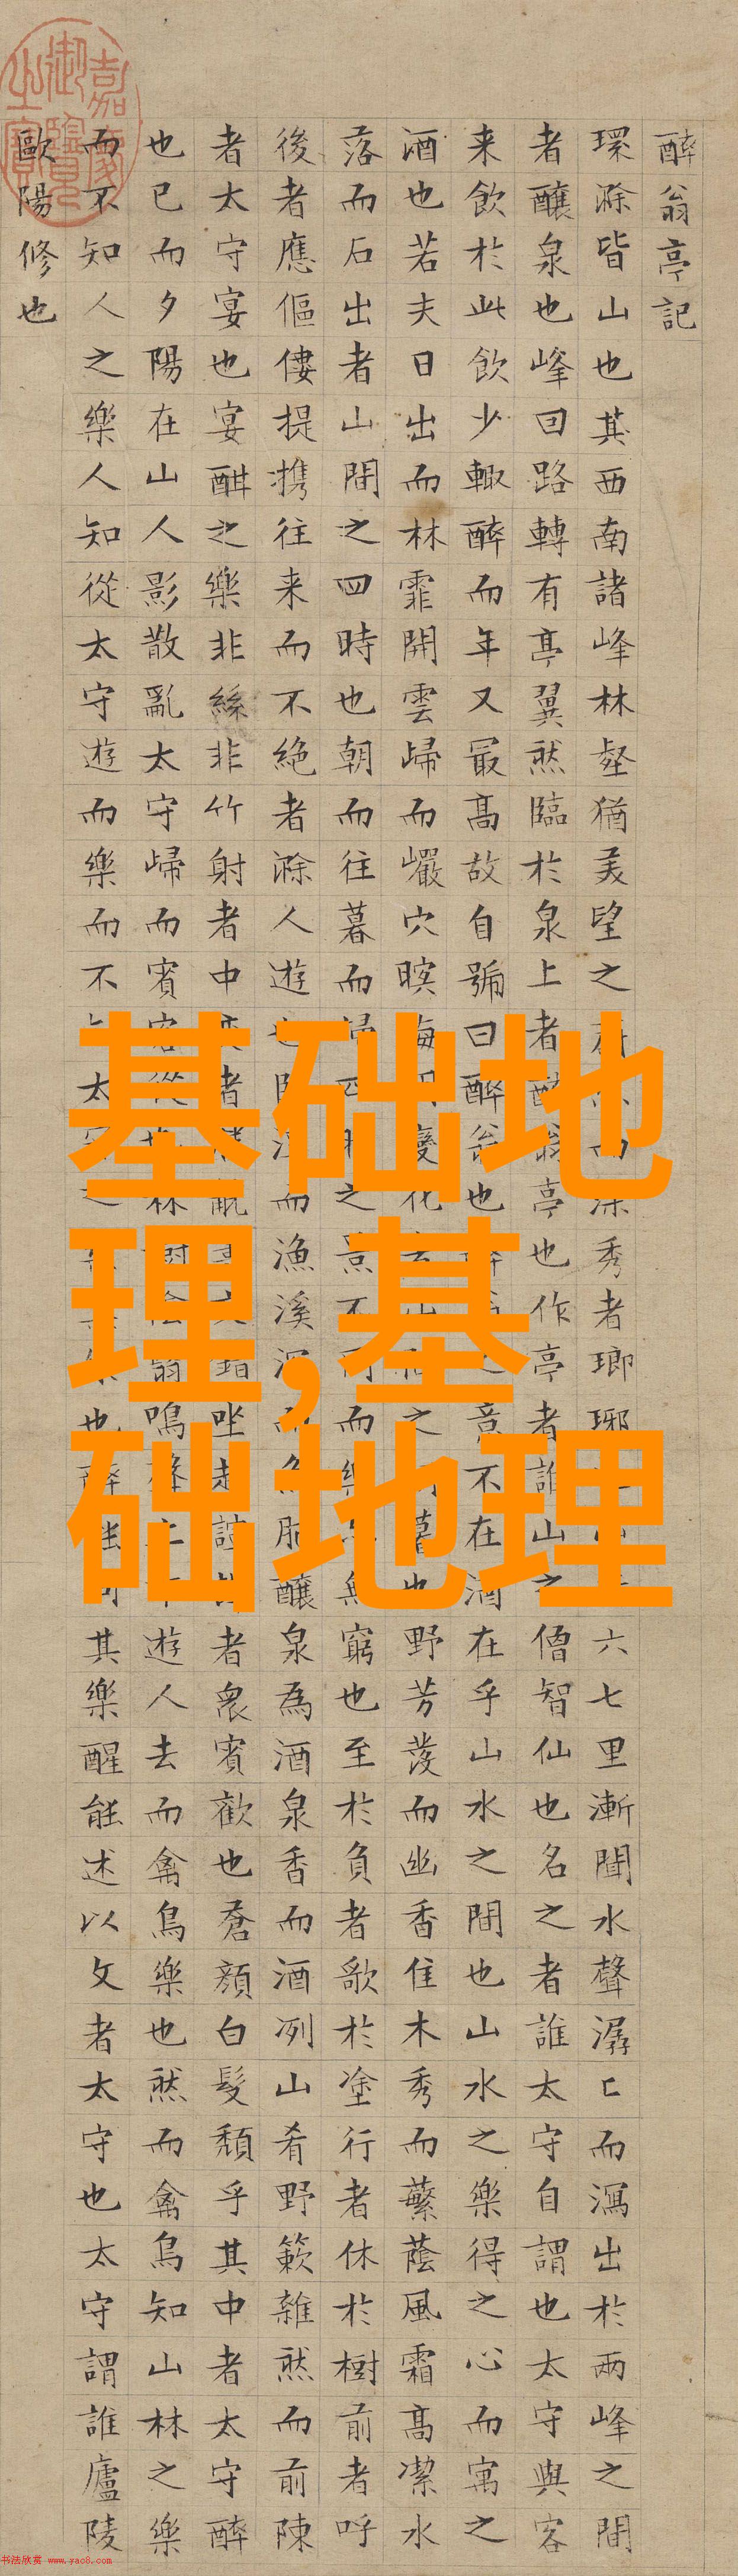 醉翁亭記
環滁皆山也其西南諸峰林壑猶美望之深秀者瑯琊六七里漸聞水聲潺〻而瀉出於兩峰之間
者釀泉也峰回路轉有亭翼然臨於泉上者翁亭也作亭者誰山之僧智仙也名之者誰太守自謂也太守與客
来飲於此飲少輙醉而年又最高故自號曰醉翁也意不在酒在乎山水之間也山水之樂得之心而寓之
酒也若夫日出而林霏開雲歸而巖穴暝晦變化之暮也野芳發而幽香佳木秀而蘩蔭風霜高潔水
落而石出者山間之四時也朝而往暮而歸四之景不而樂無窮也至於負者歌於塗行者休於樹前者呼
後者應傴僂提攜往来而不絶者滁人遊也而漁溪深肥釀泉為酒泉香而酒冽山肴野蔌雜然而前陳
者太守宴也宴酣之樂非絲非竹射者中者觥坐起者衆賓歡也蒼顏白髮頹乎其中者太守醉
也已而夕陽在山人影散亂太守歸而賓客從林翳鳴遊人去而禽鳥樂也然而禽鳥知山林之樂
而不知人之樂人知從太守遊而樂而不太之也醉其樂醒能述以文者太守也太守謂誰廬陵
歐陽修也
基础地
理,基
础地理
书法欣赏 www.yac8.com